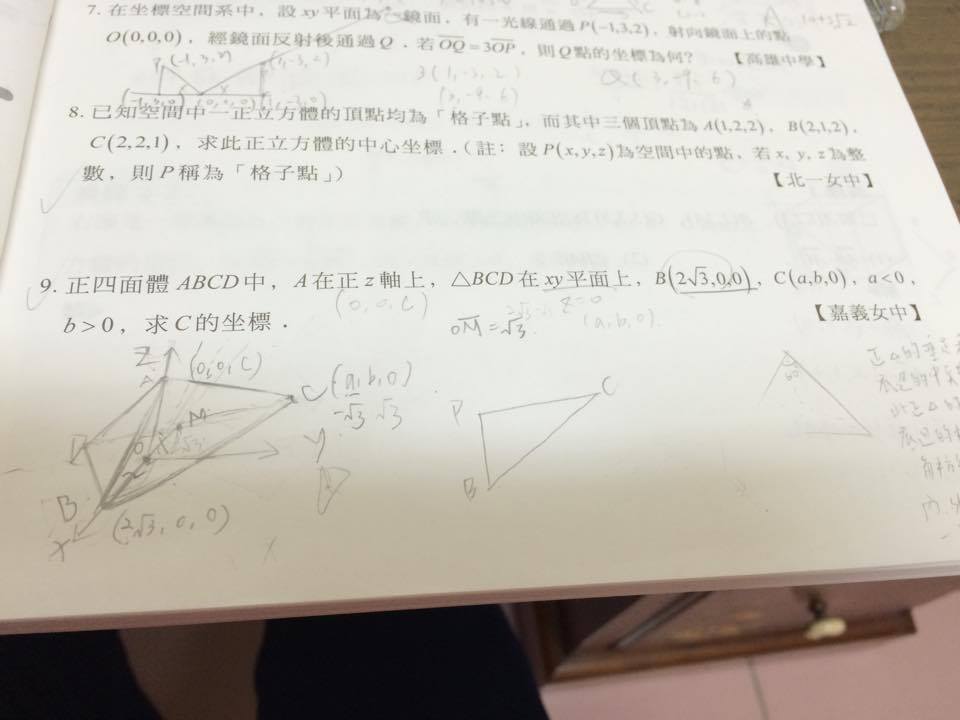 7. 在坐標空間系中，設 xy 平面為一鏡面，有一光線通過 P(-1,3,2)，射向鏡面上的點
O(0,0,0)，經鏡面反射後通過 Q．若 OQ = 3OP，則 Q 點的坐標為何？ 【高雄中學】
P(-1,3,2)
(1,-3,2)
(-1,3,0) (0,0,0) (1,-3,0)
3(1,-3,2)
(3,-9,6)
Q(3,-9,6)
8. 已知空間中一正立方體的頂點均為「格子點」，而其中三個頂點為 A(1,2,2)，B(2,1,2)，
C(2,2,1)，求此正立方體的中心坐標．(註：設 P(x,y,z) 為空間中的點，若 x, y, z 為整
數，則 P 稱為「格子點」) 【北一女中】
9. 正四面體 ABCD 中，A 在正 z 軸上，△BCD 在 xy 平面上，B(2√3,0,0)，C(a,b,0)，a<0，
b>0，求 C 的坐標． 【嘉義女中】
(0,0,C)
z=0
(a,b,0)
OM=√3
Z
(0,0,C)
A
C(a,b,0)
-√3 √3
M
O
y
B
(2√3,0,0)
x
C
B
60°